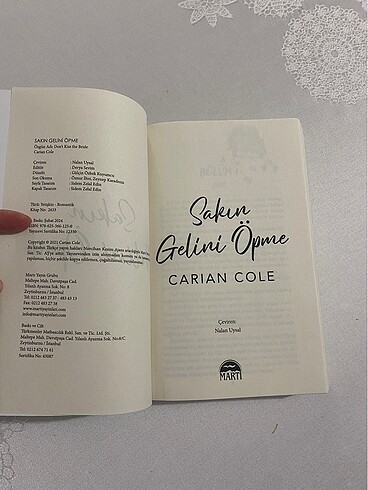 SAKIN GELİNİ ÖPME
Özgün Adı: Don't Kiss the Bride
Carian Cole
Çeviren : Nalan Uysal
Editör : Derya Sevim
Düzelti : Gülçin Özbek Kuyumcu
Son Okuma : Öznur İltir, Zeynep Karadeniz
Sayfa Tasarım : Sidem Zelal Edis
Kapak Tasarım : Sidem Zelal Edis
Türü: Yetişkin - Romantik
Kitap No: 2433
Baskı: Şubat 2024
ISBN: 978-625-366-125-0
Yayınevi Sertifika No: 12330
Copyright © 2021 Carian Cole
Martı Yayın Grubu
Maltepe Mah. Davutpaşa Cad.
Yılanlı Ayazma Sok. No: 8
Zeytinburnu / İstanbul
Tel: 0212 483 27 37 - 483 43 13
Fax: 0212 483 27 38
www.martiyayinlari.com
info@martiyayinlari.com
Baskı ve Cilt
Türkmenler Matbaacılık Rekl. San. ve Tic. Ltd. Şti.
Maltepe Mah. Davutpaşa Cad. Yılanlı Ayazma Sok. No:8/C
Zeytinburnu / İstanbul
Tel: 0212 674 71 61
Sertifika No: 43087
Sakın
Gelini Öpme
CARIAN COLE
Çeviren:
Nalan Uysal
MARTI